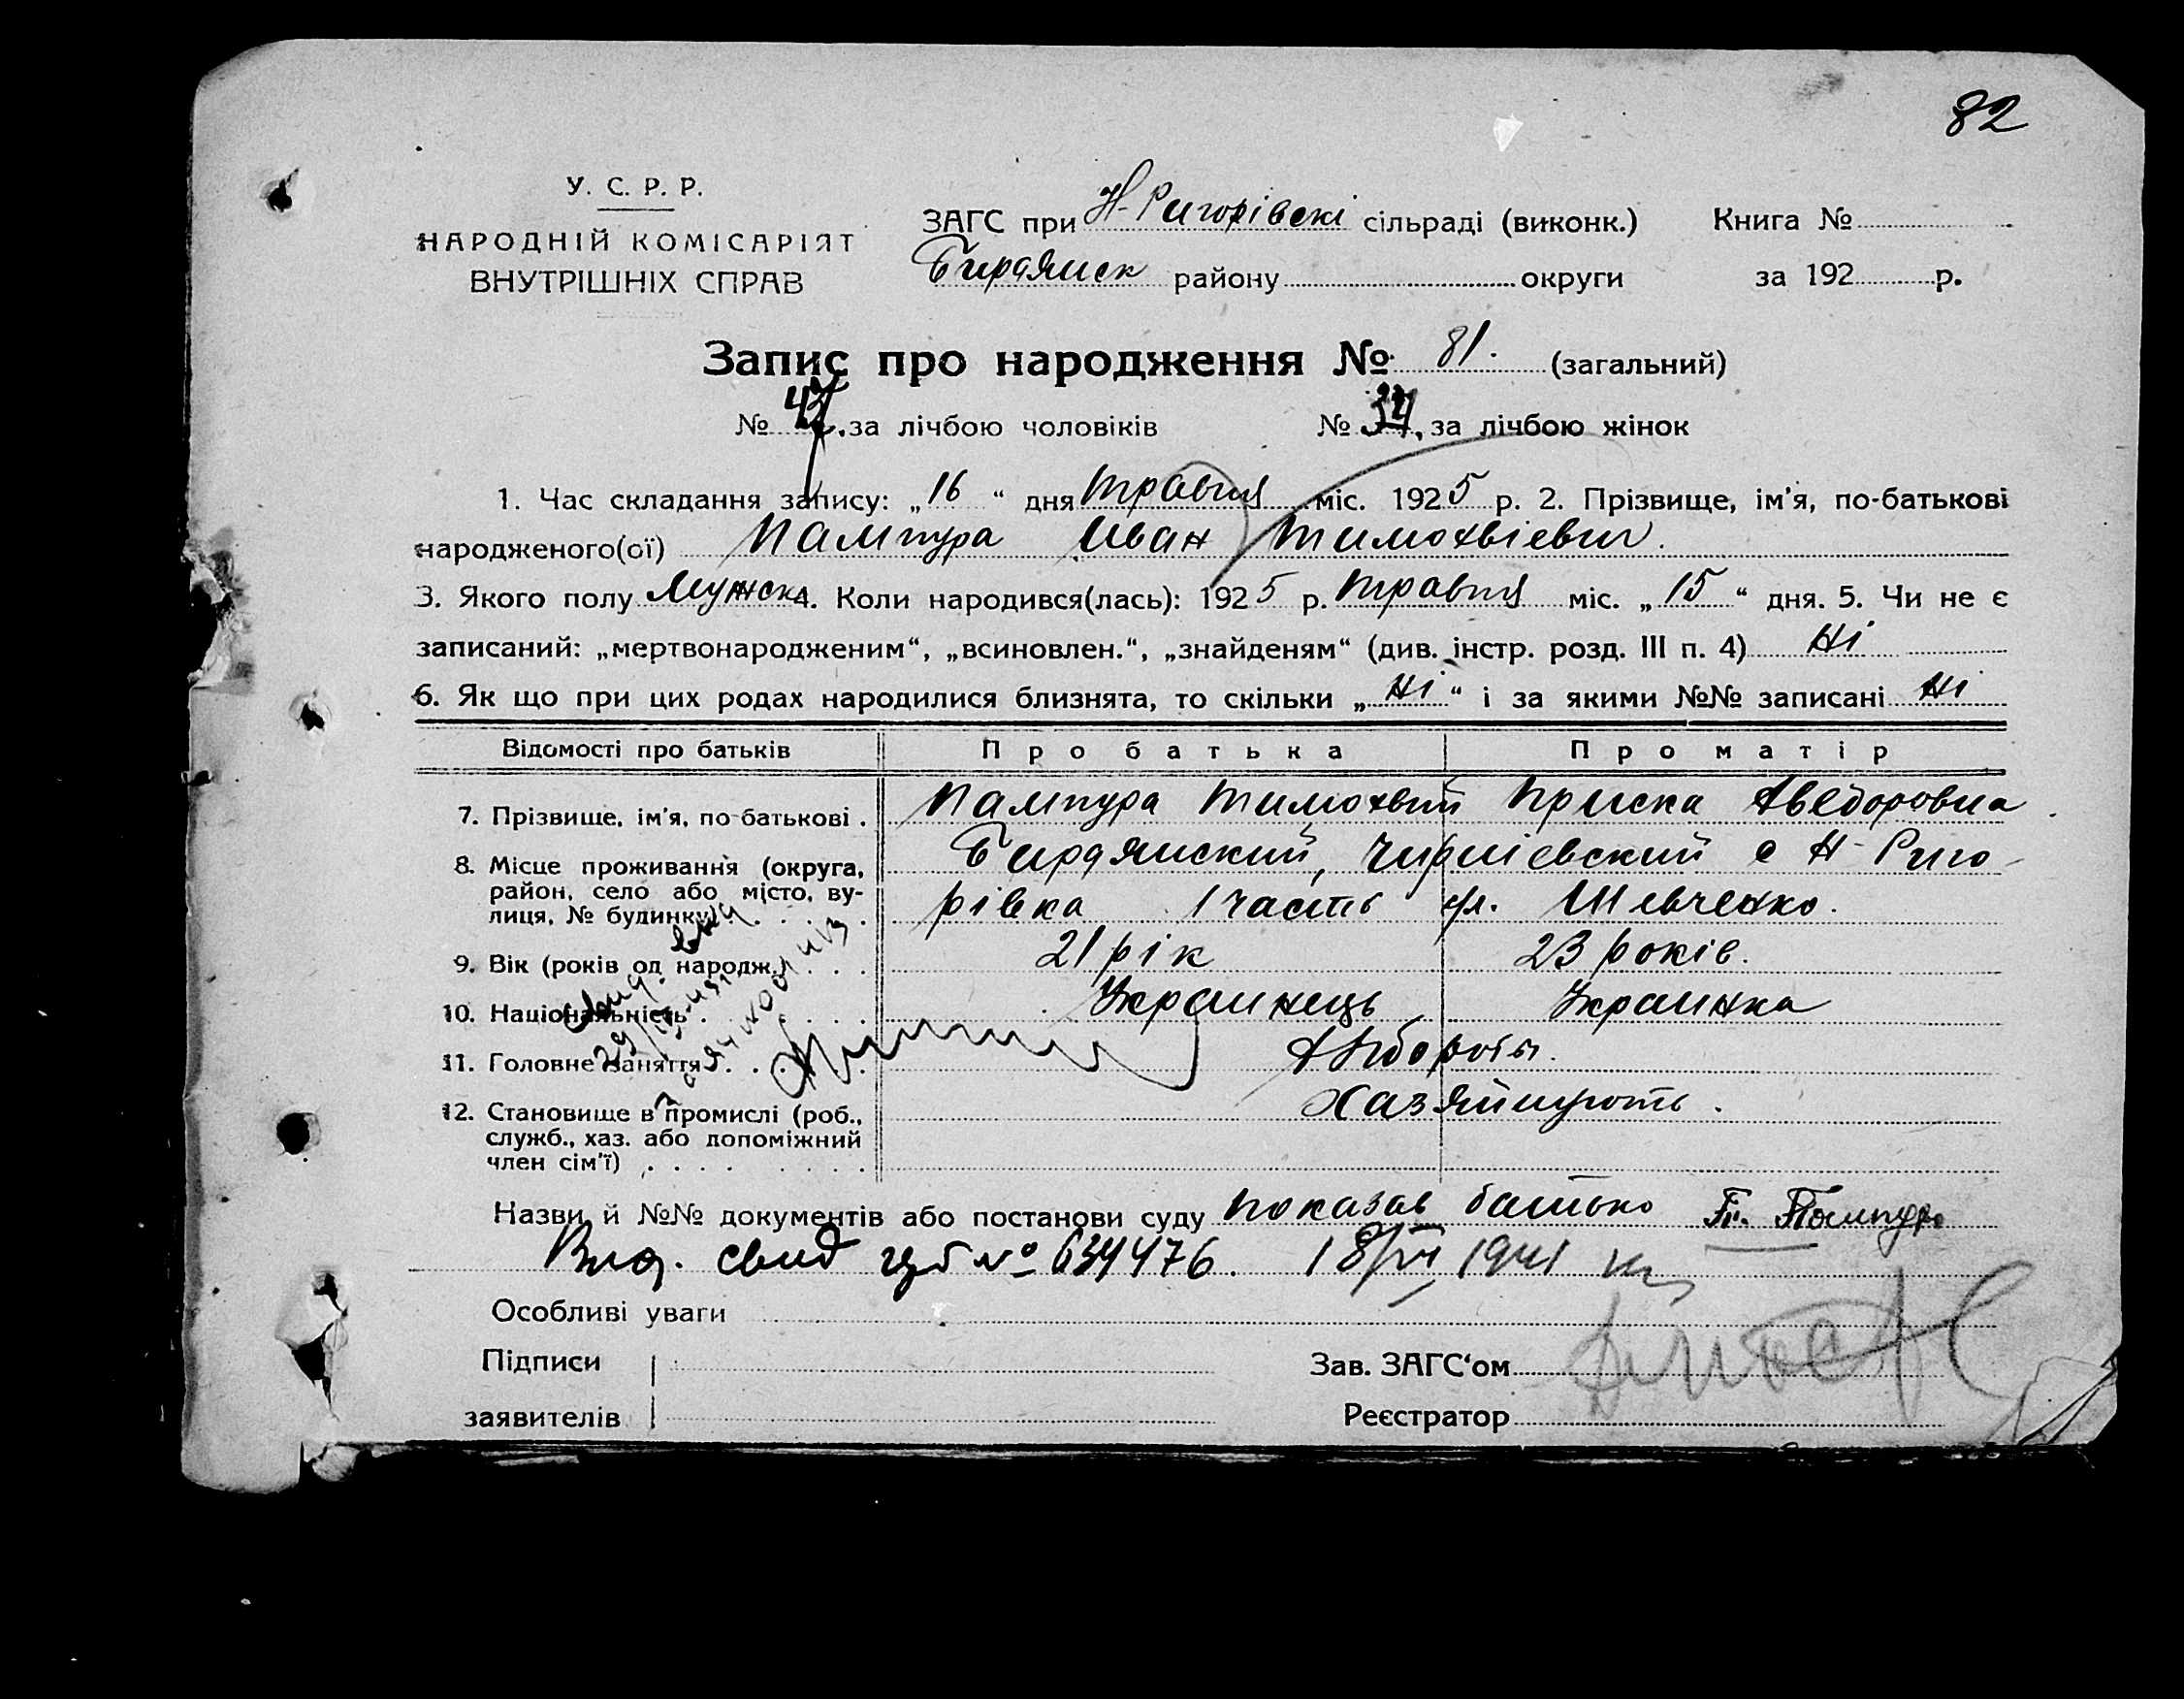 82
У. С. Р. Р.
НАРОДНІЙ КОМІСАРІЯТ
ВНУТРІШНІХ СПРАВ
ЗАГС при Н-Ригорівскі сільраді (виконк.) Книга №
Бирдянск району округи за 192 р.
Запис про народження № 81. (загальний)
№ 47, за лічбою чоловіків № 34, за лічбою жінок
1. Час складання запису: „16“ дня травня міс. 1925 р. 2. Прізвище, ім'я, по-батькові
народженого(ої) Пампура Иван Тимохвіевич.
3. Якого полу Мужск. 4. Коли народився(лась): 1925 р. травня міс. „15“ дня. 5. Чи не є
записаний: „мертвонародженим“, „всиновлен.“, „знайденям“ (див. інстр. розд. III п. 4) Ні
6. Як що при цих родах народилися близнята, то скільки „Ні“ і за якими №№ записані Ні
Відомості про батьків Про батька Про матір
7. Прізвище, ім'я, по-батькові . Пампура Тимохвий Приска Хведоровна
8. Місце проживання (округа, Бирдянский, с Н-Риго-
район, село або місто, ву-
лиця, № будинку) рівка 1 часть ул. Шевченко.
9. Вік (років од народж.) 21 рік 23 років.
10. Національність Украинець Украинка
11. Головне заняття Хлібороби.
12. Становище в промислі (роб., Хазяйнують.
служб., хаз. або допоміжний
член сім'ї)
Назви й №№ документів або постанови суду показав батько Т. Пампура
Выд. свид № 634476. 18/VI 1941
Особливі уваги
Підписи
заявителів
Зав. ЗАГС'ом
Реєстратор